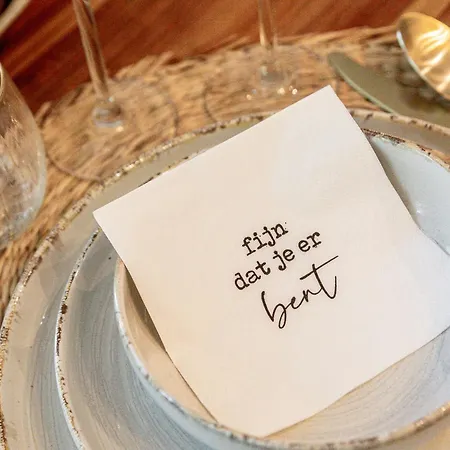 fijn
dat je er
bent